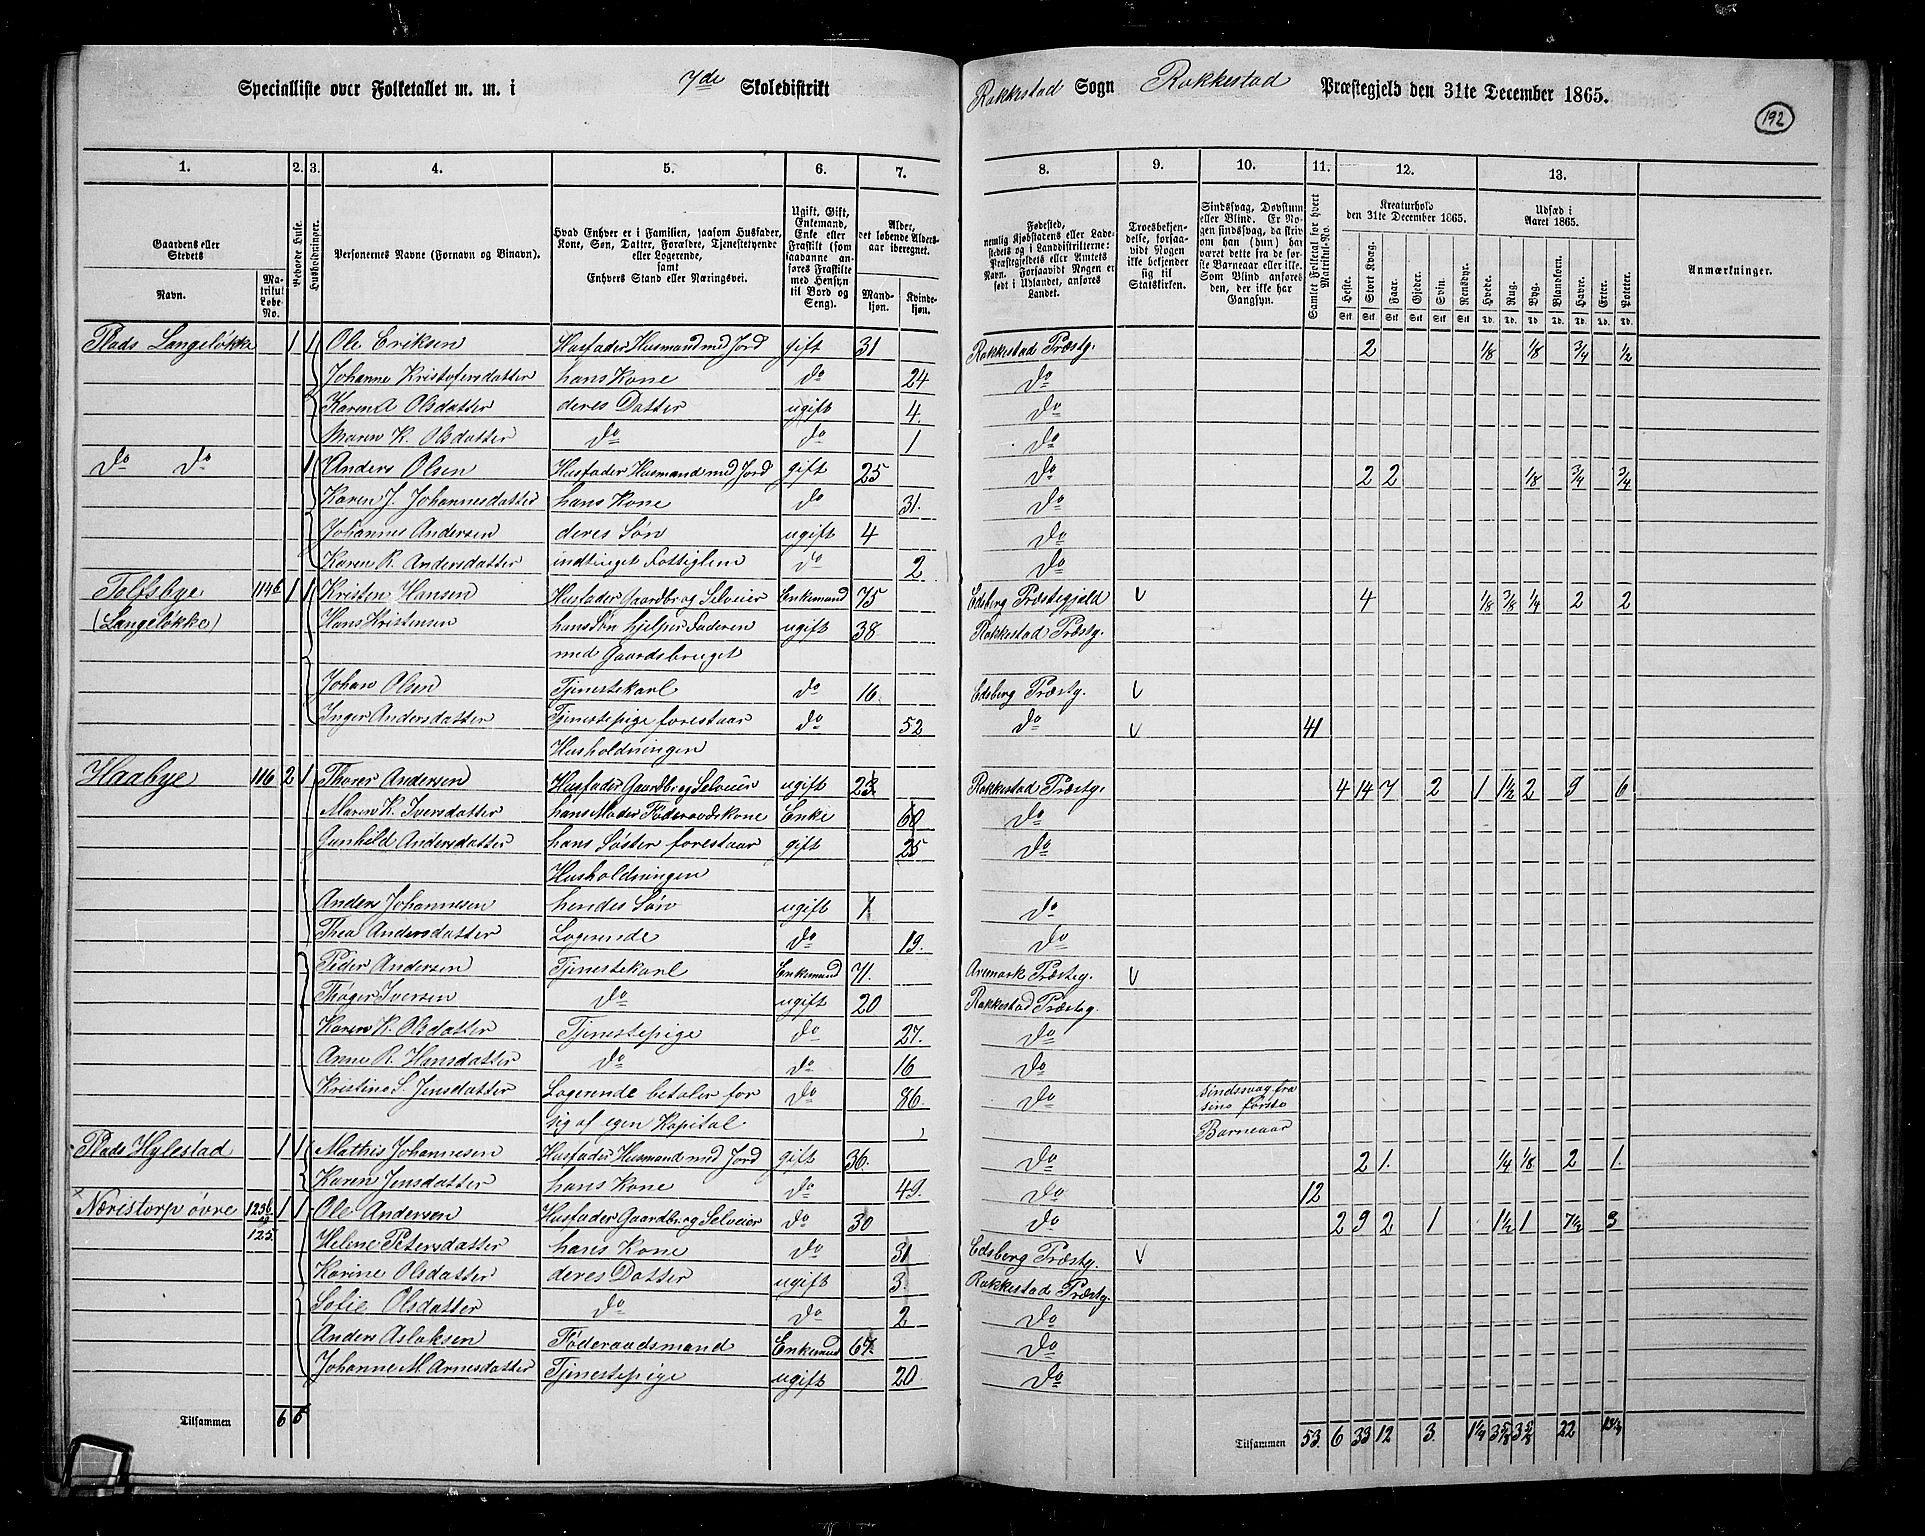 Specialliste over Folketallet m. m. i 7de Skoledistrikt Rakkestad Sogn Rakkestad Præstegjeld den 31te December 1865.
192
1. 2. 3. 4. 5. 6. 7. 8. 9. 10. 11. 12. 13.
Gaardens eller Stedets
Navn.
Matrikul Løbe-No.
Beboede Huse.
Husholdninger.
Personernes Navne (Fornavn og Binavn).
Hvad Enhver er i Familien, saasom Husfader, Kone, Søn, Datter, Forældre, Tjenestetyende eller Logerende, samt Enhvers Stand eller Næringsvei.
Ugift, Gift, Enkemand, Enke eller Fraskilt (som saadanne anføres Fraskilte med Hensyn til Bord og Seng).
Alder, det løbende Aldersaar iberegnet.
Mandkjøn. Kvindekjøn.
Fødested, nemlig Kjøbstadens eller Ladestedets og i Landdistrikterne: Præstegjeldets eller Amtets Navn. Forsaavidt Nogen er født i Udlandet, anføres Landet.
Troesbekjendelse, forsaavidt Nogen ikke bekjender sig til Statskirken.
Sindssvag, Døvstum eller Blind. Er Nogen sindssvag, da skrives om han (hun) har været dette fra de første Barneaar eller ikke. Som Blind anføres den, der ikke har Gangsyn.
Samlet Folketal for hvert Matrikul-No.
Kreaturhold den 31te December 1865.
Heste. Stort Kvæg. Faar. Gjeder. Svin. Rensdyr.
Udsæd i Aaret 1865.
Hvede. Rug. Byg. Blandkorn. Havre. Erter. Poteter.
Anmærkninger.
Plads Langeløkke 1 1 Ole Eriksen Husfader Husmand med Jord gift 31 Rakkestad Præstg. 2 1/8 1/8 3/4 1/2
Johanne Kristofersdatter hans Kone do 24 do
Karen A Olsdatter deres Datter ugift 4. do
Maren K. Olsdatter do do 1 do
do do 1 Anders Olsen Husfader Husmand med Jord gift 25 do 2 2 1/8 3/4 3/4
Karen J. Johannesdatter hans Kone do 31. do
Johannes Andersen deres Søn ugift 4 do
Karen R. Andersdatter indtinget Fattiglem do 2 do
Tolfsbye 114b 1 1 Kristen Hansen Husfader Gaardbr og Selveier Enkemand 75 Edsberg Præstegjeld 4 1/8 3/8 1/4 2 2
(Langeløkke) Hans Kristensen hans Søn hjelper Faderen ugift 38 Rakkestad Præstg.
med Gaardsbruget
Johan Olsen Tjenestekarl do 16. Edsberg Præstg.
Inger Andersdatter Tjenestepige forestaar do 52 do 41
Husholdningen
Haabye 116 2 1 Thorer Andersen Husfader Gaardbr og Selveier ugift 23. Rakkestad Præstg. 4 14 7 2 1 1 1/2 2 9 6
Maren K. Iversdatter hans Moder Føderaadskone Enke 60 do
Gunhild Andersdatter hans Søster forestaar gift 25 do
Husholdningen
Anders Johannesen hendes Søn ugift 1 do
Thea Andersdatter Logerende do 19. do
Peder Andersen Tjenestekarl Enkemand 71. Aremark Præsteg.
Thøger Iversen do ugift 20 Rakkestad Præsteg.
Karen K. Olsdatter Tjenestepige do 27. do
Anne R. Hansdatter do do 16 do
Kristine S. Jensdatter Logerende betaler for do 86. do Sindssvag fra
sig af egen Kapital sine første
Barneaar
Plads Hylestad 1 1 Mathis Johannesen Husfader Husmand med Jord gift 36. do 2 1. 1/4 1/8 2 1.
Karen Jensdatter hans Kone do 49. do 12
Næristorp øvre 123b 1 1 Ole Andersen Husfader Gaardbr og Selveier do 30 do 2 9 2 1 1 1/2 1 7 1/2 3
og 125. Helene Petersdatter hans Kone do 31 Edsberg Præstg.
Karine Olsdatter deres Datter ugift 3. Rakkestad Præstg.
Sofie Olsdatter do do 2 do
Anders Aslaksen Føderaadsmand Enkemand 67. do
Johanne M. Arnesdatter Tjenestepige ugift 20 do
Tilsammen 6 6
Tilsammen 53. 6 33 12 3. 1 1/4 3 5/8 3 5/8 22 13 1/4